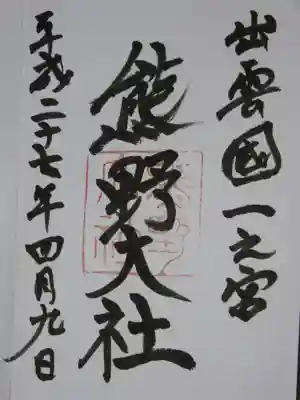 出雲國一之宮
熊野大社
平成二十七年四月九日